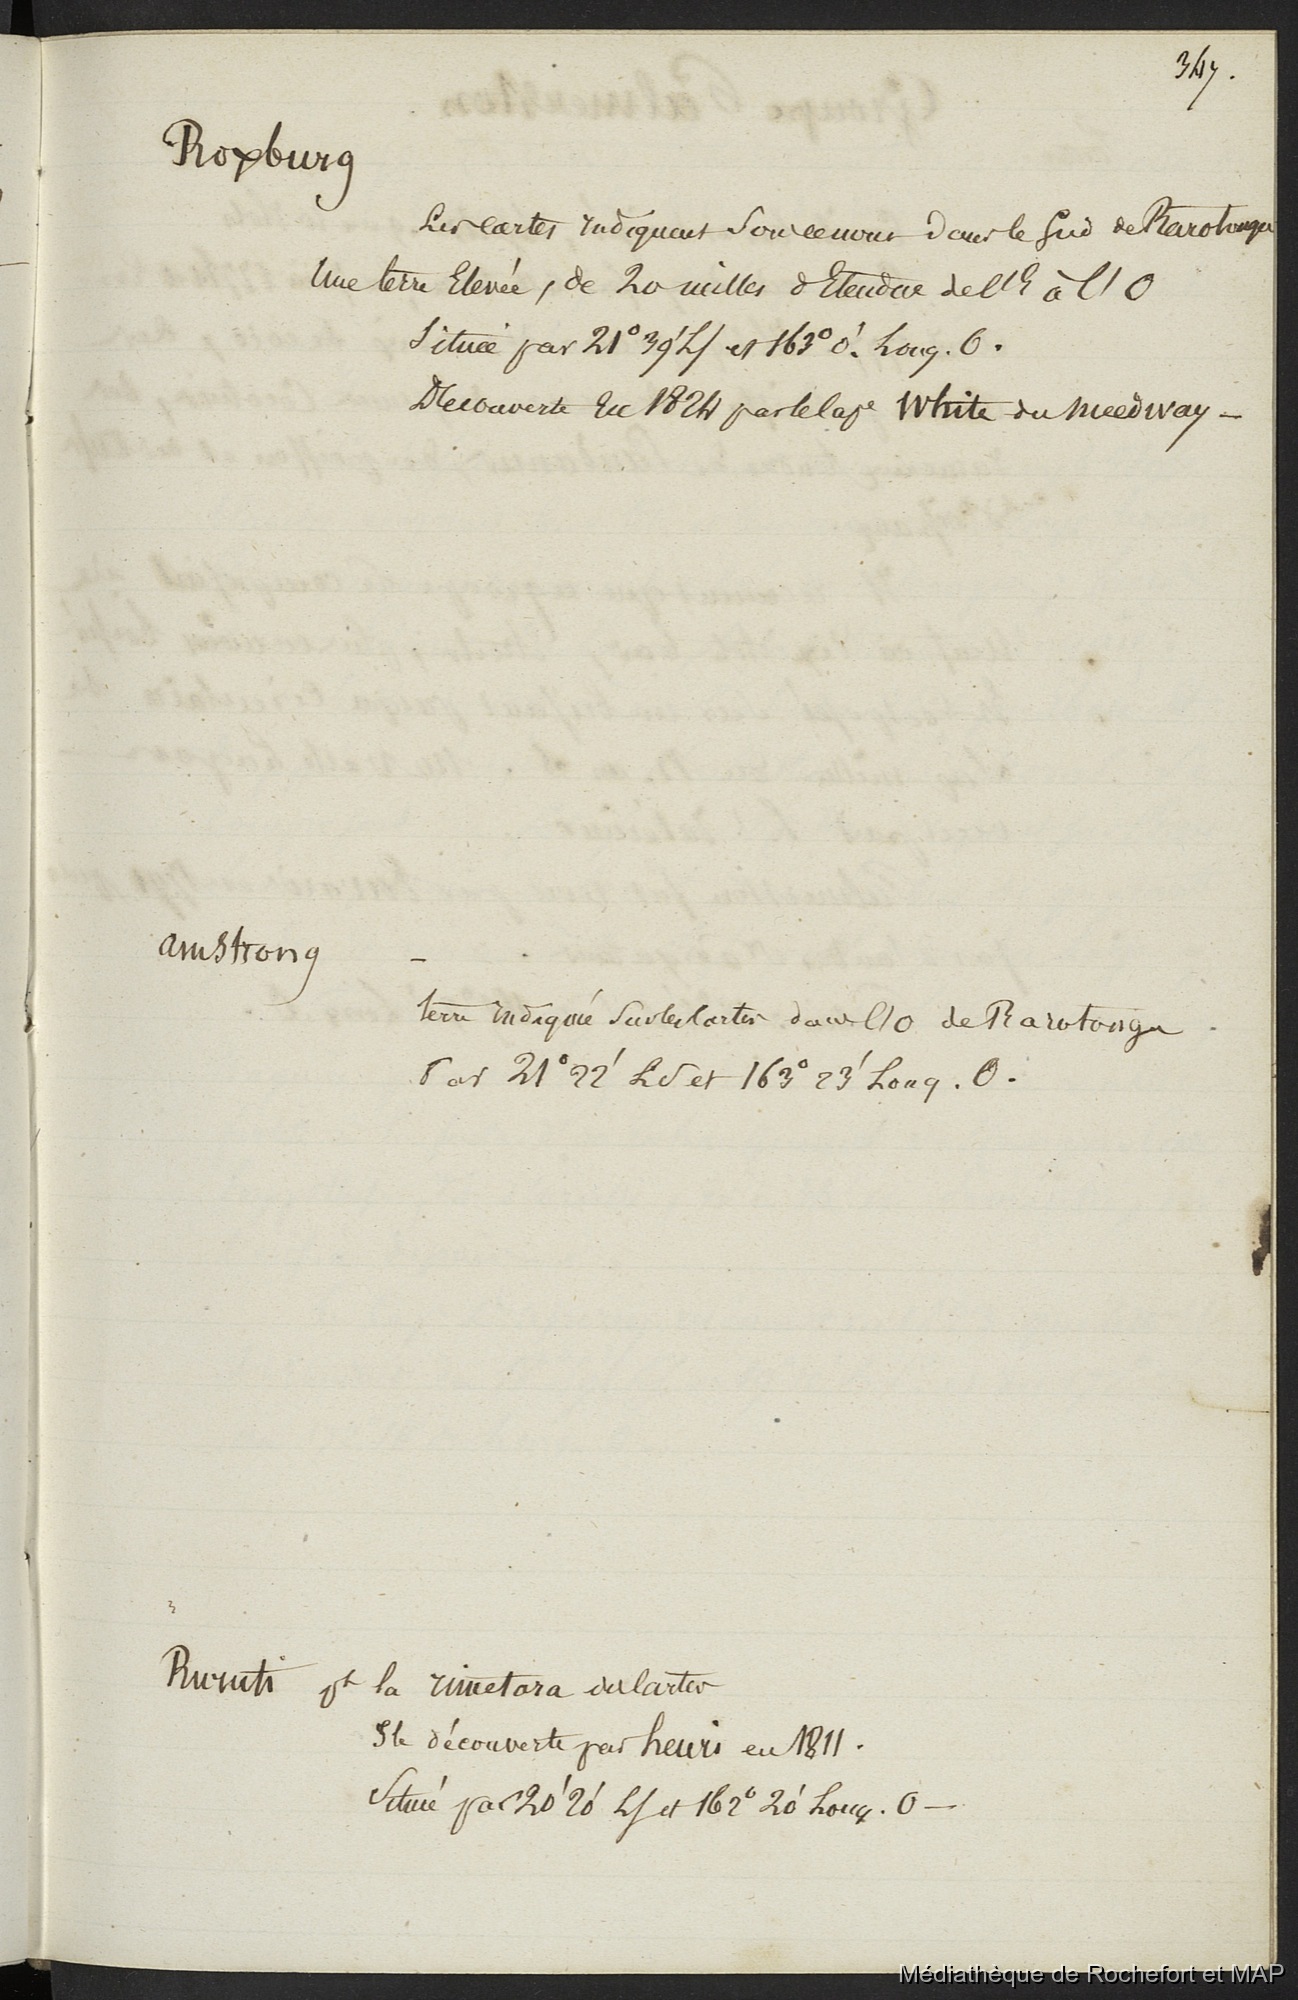 347.
Roxburg
Les cartes indiquent dans le Sud de Rarotonga
Une terre Elevée, de 20 milles d'Etendue de l'E à l'O
Située par 21° 39' LS et 163° 0'. Long. O.
Découverte En 1824 par le Cape White du Meedway —
amstrong —
terre indiquée sur les Cartes dans l'O de Rarotonga
Par 21° 22' LS et 163° 23' Long. O.
Rurutі pt la rimetara des Cartes
Ile découverte par henri en 1811.
Situé par 20° 20' LS et 162° 20' Long. O —
Médiathèque de Rochefort et MAP